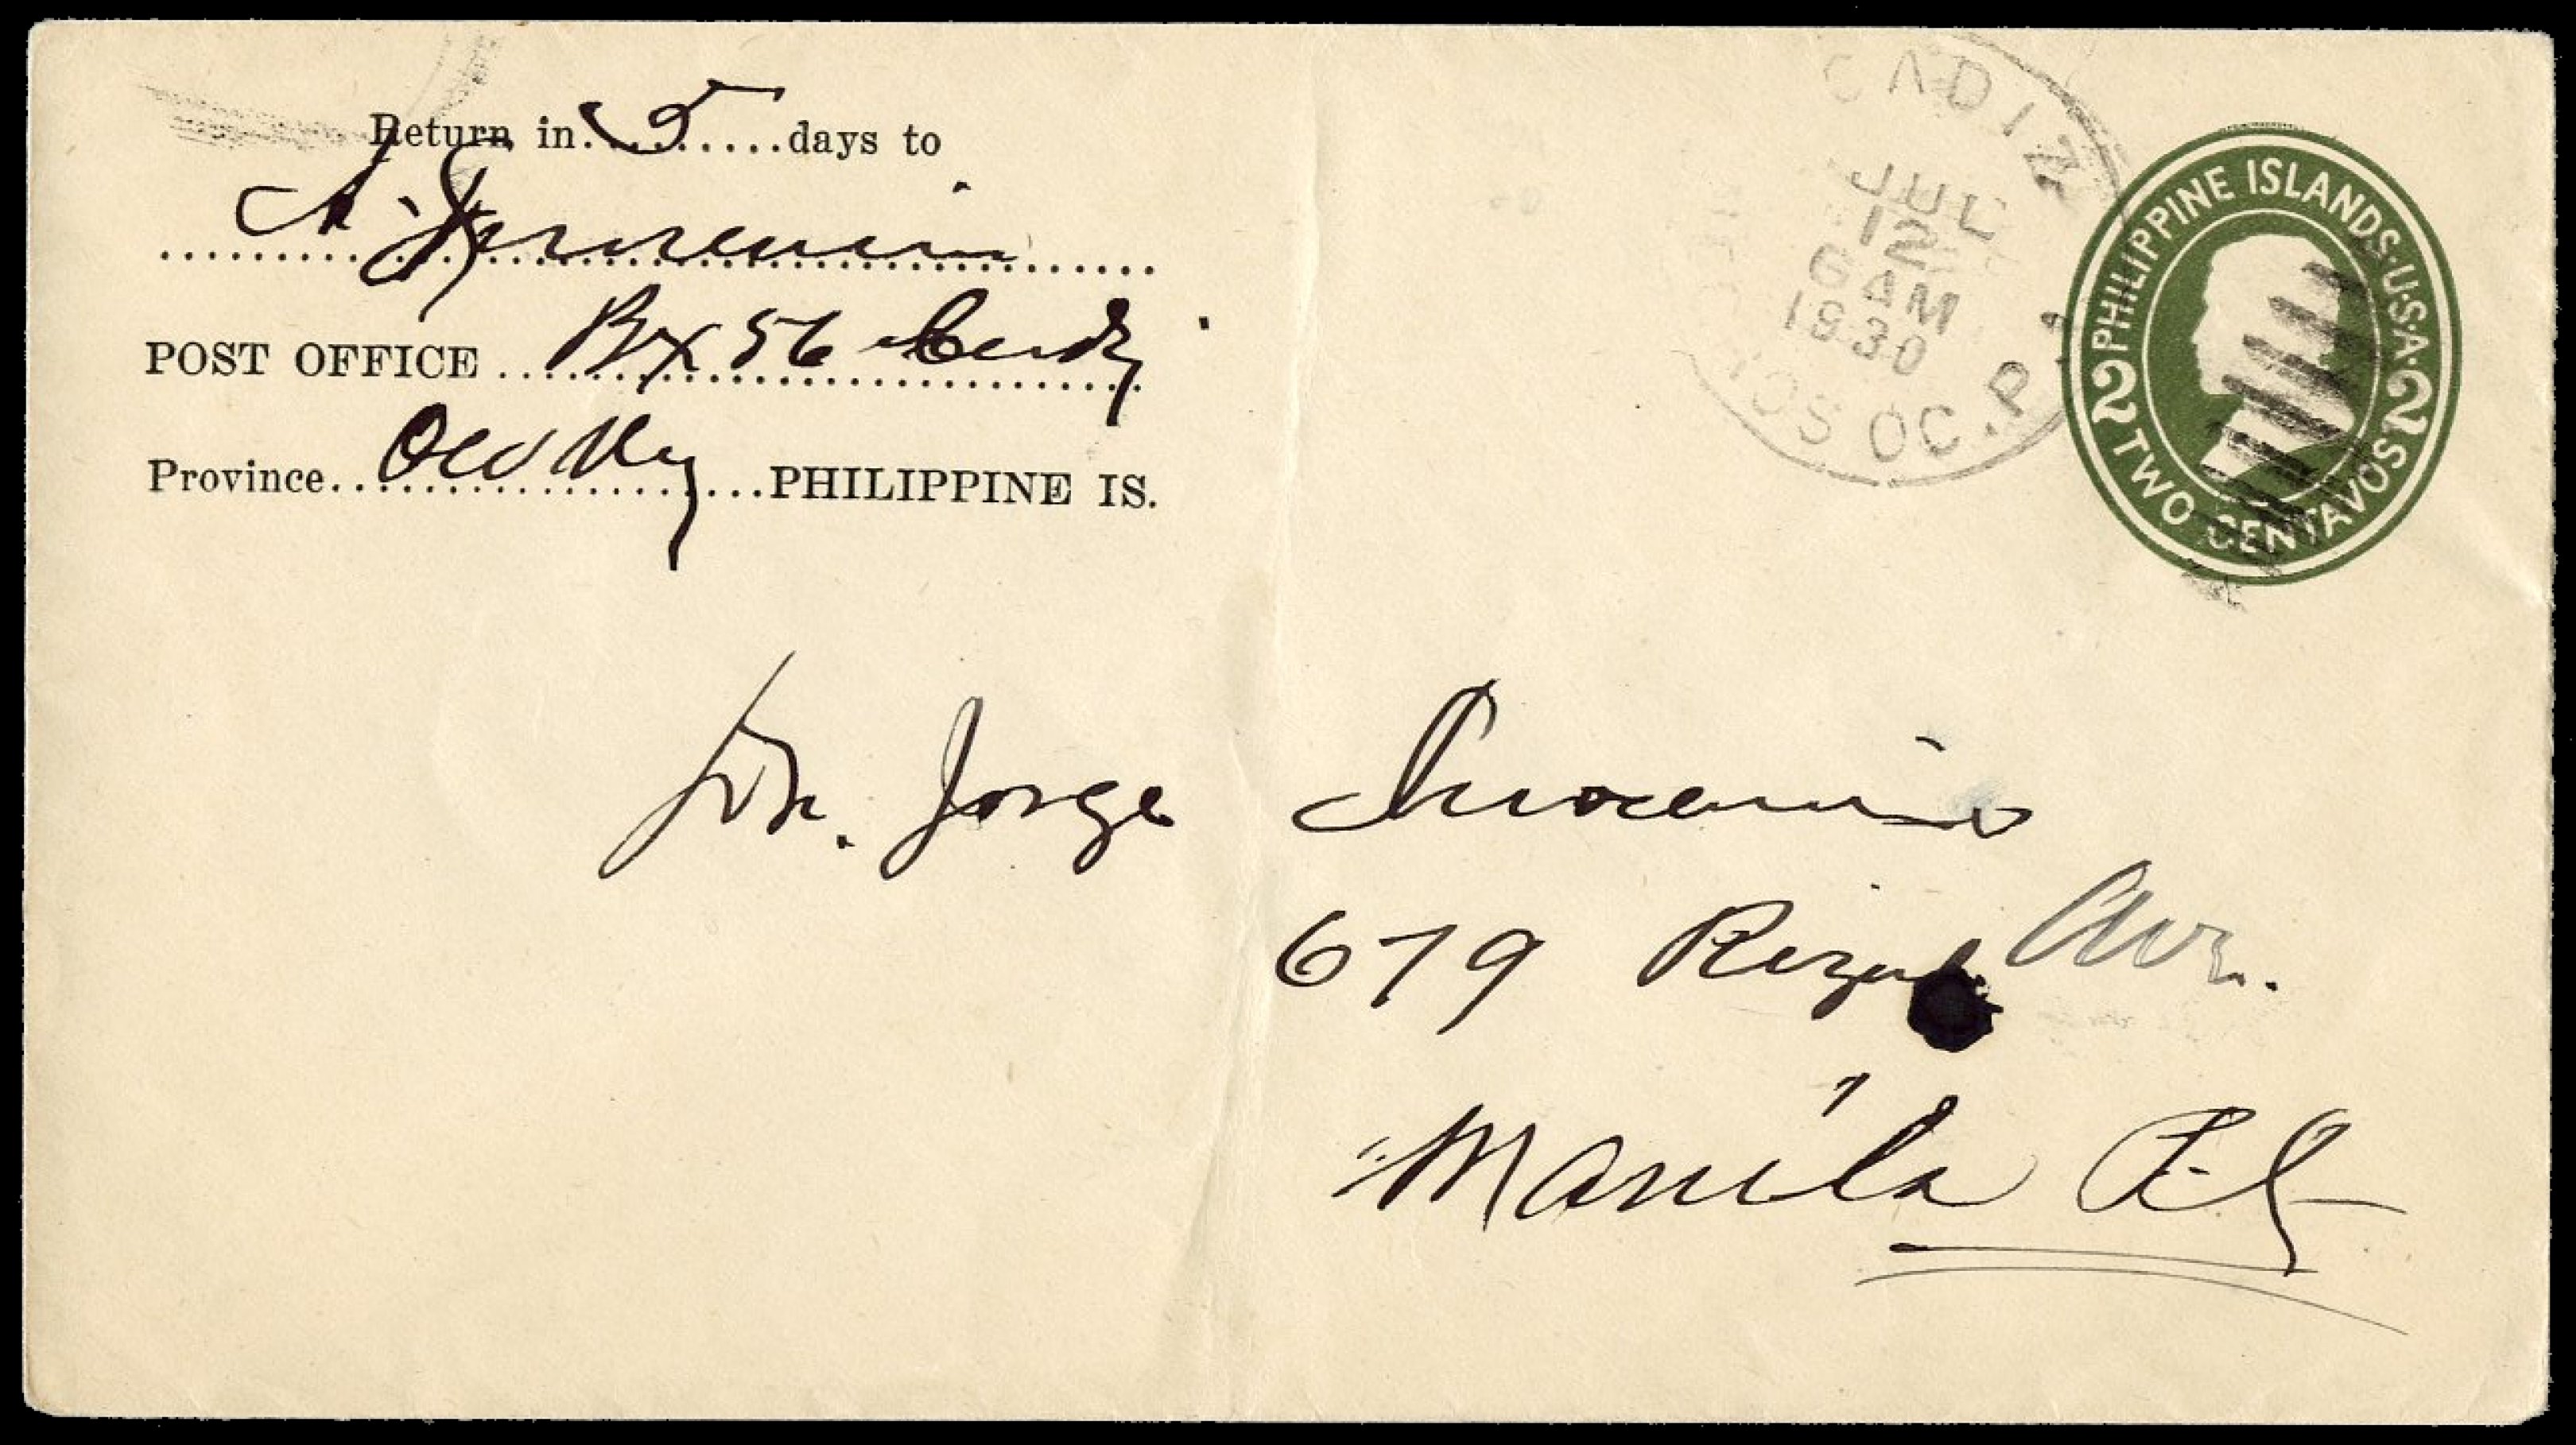 Return in 5 days to
A.
POST OFFICE Bx 56 Cadiz
Province Occ Neg PHILIPPINE IS.
CADIZ
JUL
12
6 AM
1930
OS OC. P.I.
PHILIPPINE ISLANDS·U·S·A·
2 TWO CENTAVOS 2
Sr. Jorge Inocencio
679 Rizal Ave.
Manila P.I.